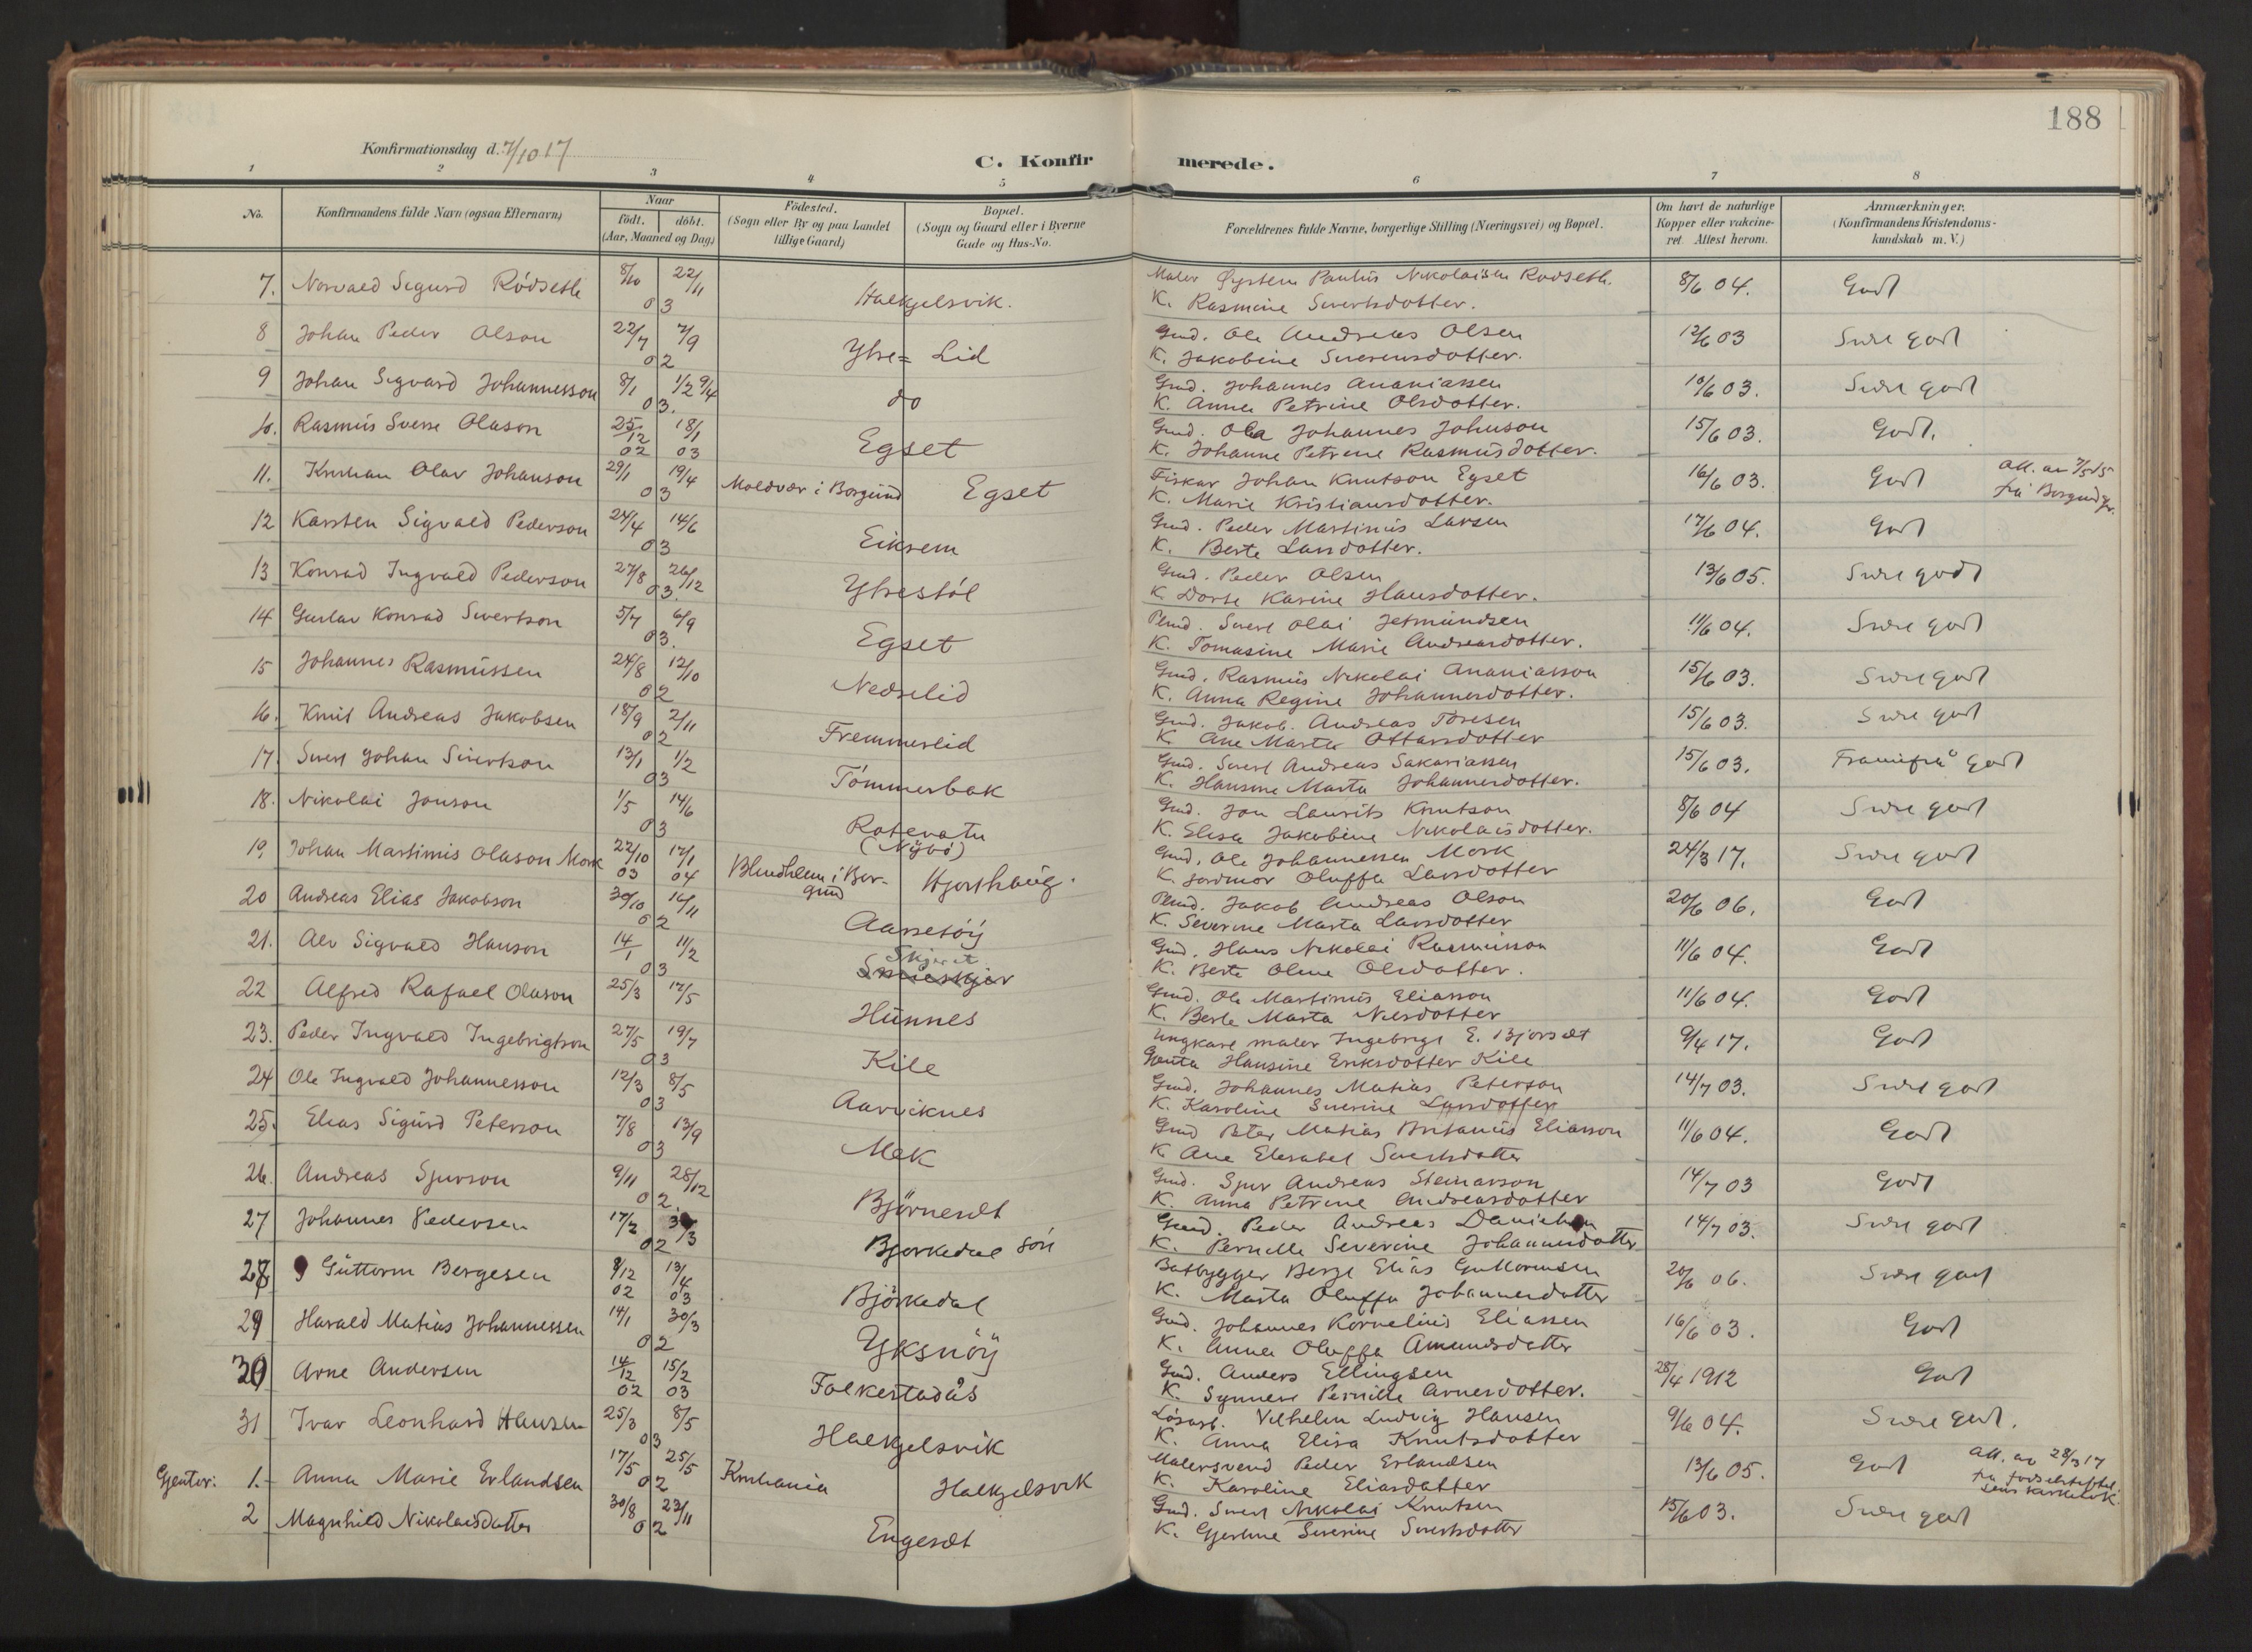 188
Konfirmationsdag d. 7/10 17
C. Konfirmerede.
1 2 3 4 5 6 7 8
No. Konfirmandens fulde Navn (ogsaa Efternavn) Naar födt. döbt. (Aar, Maaned og Dag) Födested. (Sogn eller By og paa Landet tillige Gaard) Bopæl. (Sogn og Gaard eller i Byerne Gade og Hus-No. Forældrenes fulde Navne, borgerlige Stilling (Næringsvei) og Bopæl. Om havt de naturlige Kopper eller vakcineret Attest herom. Anmærkninger. (Konfirmandens Kristendomskundskab m. V.)
7. Norvald Sigurd Rödseth 8/10 22/11 03 Halkjelsvik. Maler Øystein Paulus Nikolaisen Rödseth. 8/6 04. Godt
K. Rasmine Sivertsdotter.
8 Johan Peder Olson 22/7 7/9 02 Ytre= Lid Gmd. Ole Andreas Olsen 12/6 03 Svære godt
K. Jakobine Sverensdotter.
9 Johan Sigvard Johannesson 8/1 1/2 9/4 03. do Gmd. Johannes Ananiassen 10/6 03. Svære godt
K. Anna Petrine Olsdotter.
10. Rasmus Sverre Olason 25/12 02 18/1 03 Egset Gmd. Ola Johannes Johnson 15/6 03. Godt.
K. Johanne Petrine Rasmusdotter.
11. Kristian Olav Johanson 29/1 19/4 03 Moldvær i Borgund Egset Fiskar Johan Knutson Egset 16/6 03. Godt Att. av 7/5 15 frå Borgund pr.
K. Marie Kristiansdotter.
12 Karsten Sigvald Pederson 24/4 14/6 03 Eiksem Gmd. Peder Martinus Larsen 17/6 04. Godt
K. Berte Larsdotter.
13 Konrad Ingvald Pederson 27/8 26/12 03. Ytrestöl Gmd. Peder Olsen 13/6 05. Svære godt
K. Dorte Karine Hansdotter.
14 Gustav Konrad Sivertson 5/7 6/9 03. Egset Plmd. Sivert Olai Jetmundsen 11/6 04. Svære godt
K. Tomasine Marie Andreasdotter.
15 Johannes Rasmussen 24/8 12/10 02 Nedrelid Gmd. Rasmus Nikolai Ananiasson 15/6 03. Svære godt
K. Anna Regine Johannesdotter.
16. Knut Andreas Jakobsen 18/9 2/11 02 Fremmerlid Gmd. Jakob. Andreas Toresen 15/6 03. Svære godt
K. Ane Marta Ottarsdotter
17. Sivert Johan Sivertson 13/1 1/2 03 Tömmerbak Gmd. Sivert Andreas Sakariassen 15/6 03. Framifrå godt
K. Hansine Marta Johannesdotter.
18. Nikolai Jonson 1/5 14/6 03 Rotevatn (Nybö) Gmd. Jon Laurits Knutson 8/6 04 Svære godt
K. Elisa Jakobine Nikolaisdotter.
19. Johan Martinus Olason Mork 22/10 03 17/1 04 Blindheim i Borgund Hjorthaug. Gmd. Ole Johannessen Mork 24/3 17. Svære godt
K. jordmor Oluffa Larsdotter
20 Andreas Elias Jakobson 30/10 16/11 02 Aarsetöy Plmd. Jakob Andreas Olson 20/6 06. Godt
K. Severine Marta Larsdotter
21. Alv Sigvald Hanson 14/1 11/2 03 Skjeret Gmd. Hans Nikolai Rasmusson 11/6 04. Godt
K. Berte Oline Olsdotter.
22 Alfred Rafael Olason 25/3 17/5 Hunnes Gmd. Ole Martinus Eliasson 11/6 04. Godt
K. Berte Marta Nilsdotter
23. Peder Ingvald Ingebrigtson 27/5 19/7 03 Kile Ungkare maler Ingebrigt E. Bjørset 9/4 17. Godt
Gjenta Hansine Eriksdotter Kile
24 Ole Ingvald Johannesson 12/3 8/5 03 Aarviknes Gmd. Johannes Matias Peterson 14/7 03. Svære godt
K. Karoline Severine Larsdotter
25. Elias Sigurd Peterson 7/8 13/9 03 Mek Gmd Peter Matias Britanus Eliasson 11/6 04. Godt
K. Ane Elesabet Sivertsdotter
26. Andreas Sjurson 9/11 28/12 02. Björneset Gmd. Sjur Andreas Steinarson 14/7 03 Godt
K. Anna Petrine Andreasdotter
27 Johannes Pedersen 17/2 /3 02 Bjorkedal Gmd. Peder Andreas Danielson 14/7 03. Svære godt
K. Pernille Severine Johannesdotter
28 Guttorm Bergesen 8/12 02 13/4 03 Björkedal Båtbygger Berge Elias Guttormsen 20/6 06. Svære godt
K. Marta Oluffa Johannesdotter
29 Harald Matias Johannessen 14/1 30/3 02 Yksnöy Gmd. Johannes Kornelius Eliassen 16/6 03. Godt
K. Anna Oluffa Amundsdotter
30 Arne Andersen 14/12 02 15/2 03 Folkestadås Gmd. Anders Ellingsen 28/4 1912 Godt
K. Synneve Pernille Arnesdotter.
31 Ivar Leonhard Hansen 25/3 8/5 03 Halkjelsvik Lösarb. Vilhelm Ludvig Hansen 9/6 04. Svære godt.
K. Anna Elisa Knutsdotter
Gjentor: 1. Anna Marie Erlandsen 17/5 25/5 02 Kristiania Halkjelsvik Malersvend Peder Erlandsen 13/6 05. Godt Att. av 28/3 17
K. Karoline Eliasdotter
2 Magnhild Nikolaisdotter 30/8 23/11 02 Engeset Gmd. Sivert Nikolai Knutsen 15/6 03. Svære godt
K. Gjertine Severine Sivertsdotter